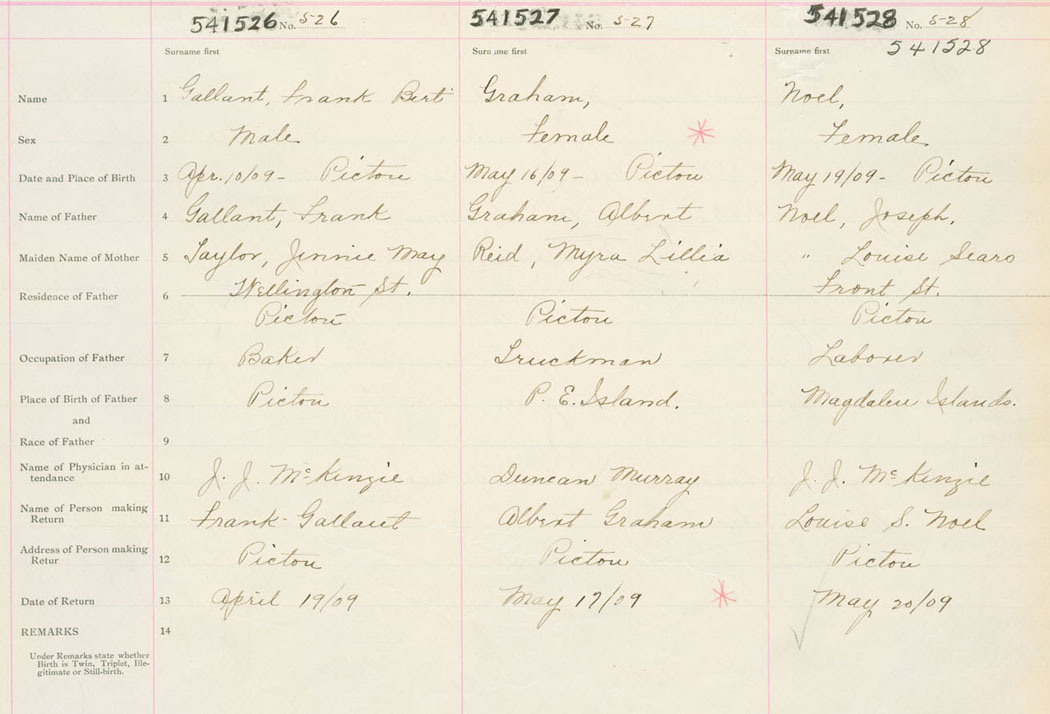 541526 No. 526 541527 No. 527 541528 No. 528
541528
Surname first Surname first Surname first
Name 1 Gallant, Frank Bert Graham, Noel,
Sex 2 Male Female Female
Date and Place of Birth 3 Apr. 10/09- Pictou May 16/09- Pictou May 19/09- Pictou
Name of Father 4 Gallant, Frank Graham, Albert Noel, Joseph.
Maiden Name of Mother 5 Taylor, Jinnie May Reid, Myra Lillia " Louise Sears
Wellington St. Front St.
Residence of Father 6
Pictou Pictou Pictou
Occupation of Father 7 Baker Truckman Laborer
Place of Birth of Father 8 Pictou P. E. Island. Magdalen Islands.
and
Race of Father 9
Name of Physician in at-
tendance 10 J. J. McKenzie Duncan Murray J. J. McKenzie
Name of Person making
Return 11 Frank Gallant Albert Graham Louise S. Noel
Address of Person making
Retur 12 Pictou Pictou Pictou
Date of Return 13 April 19/09 May 17/09 May 20/09
REMARKS 14
Under Remarks state whether
Birth is Twin, Triplet, Ille-
gitimate or Still-birth.